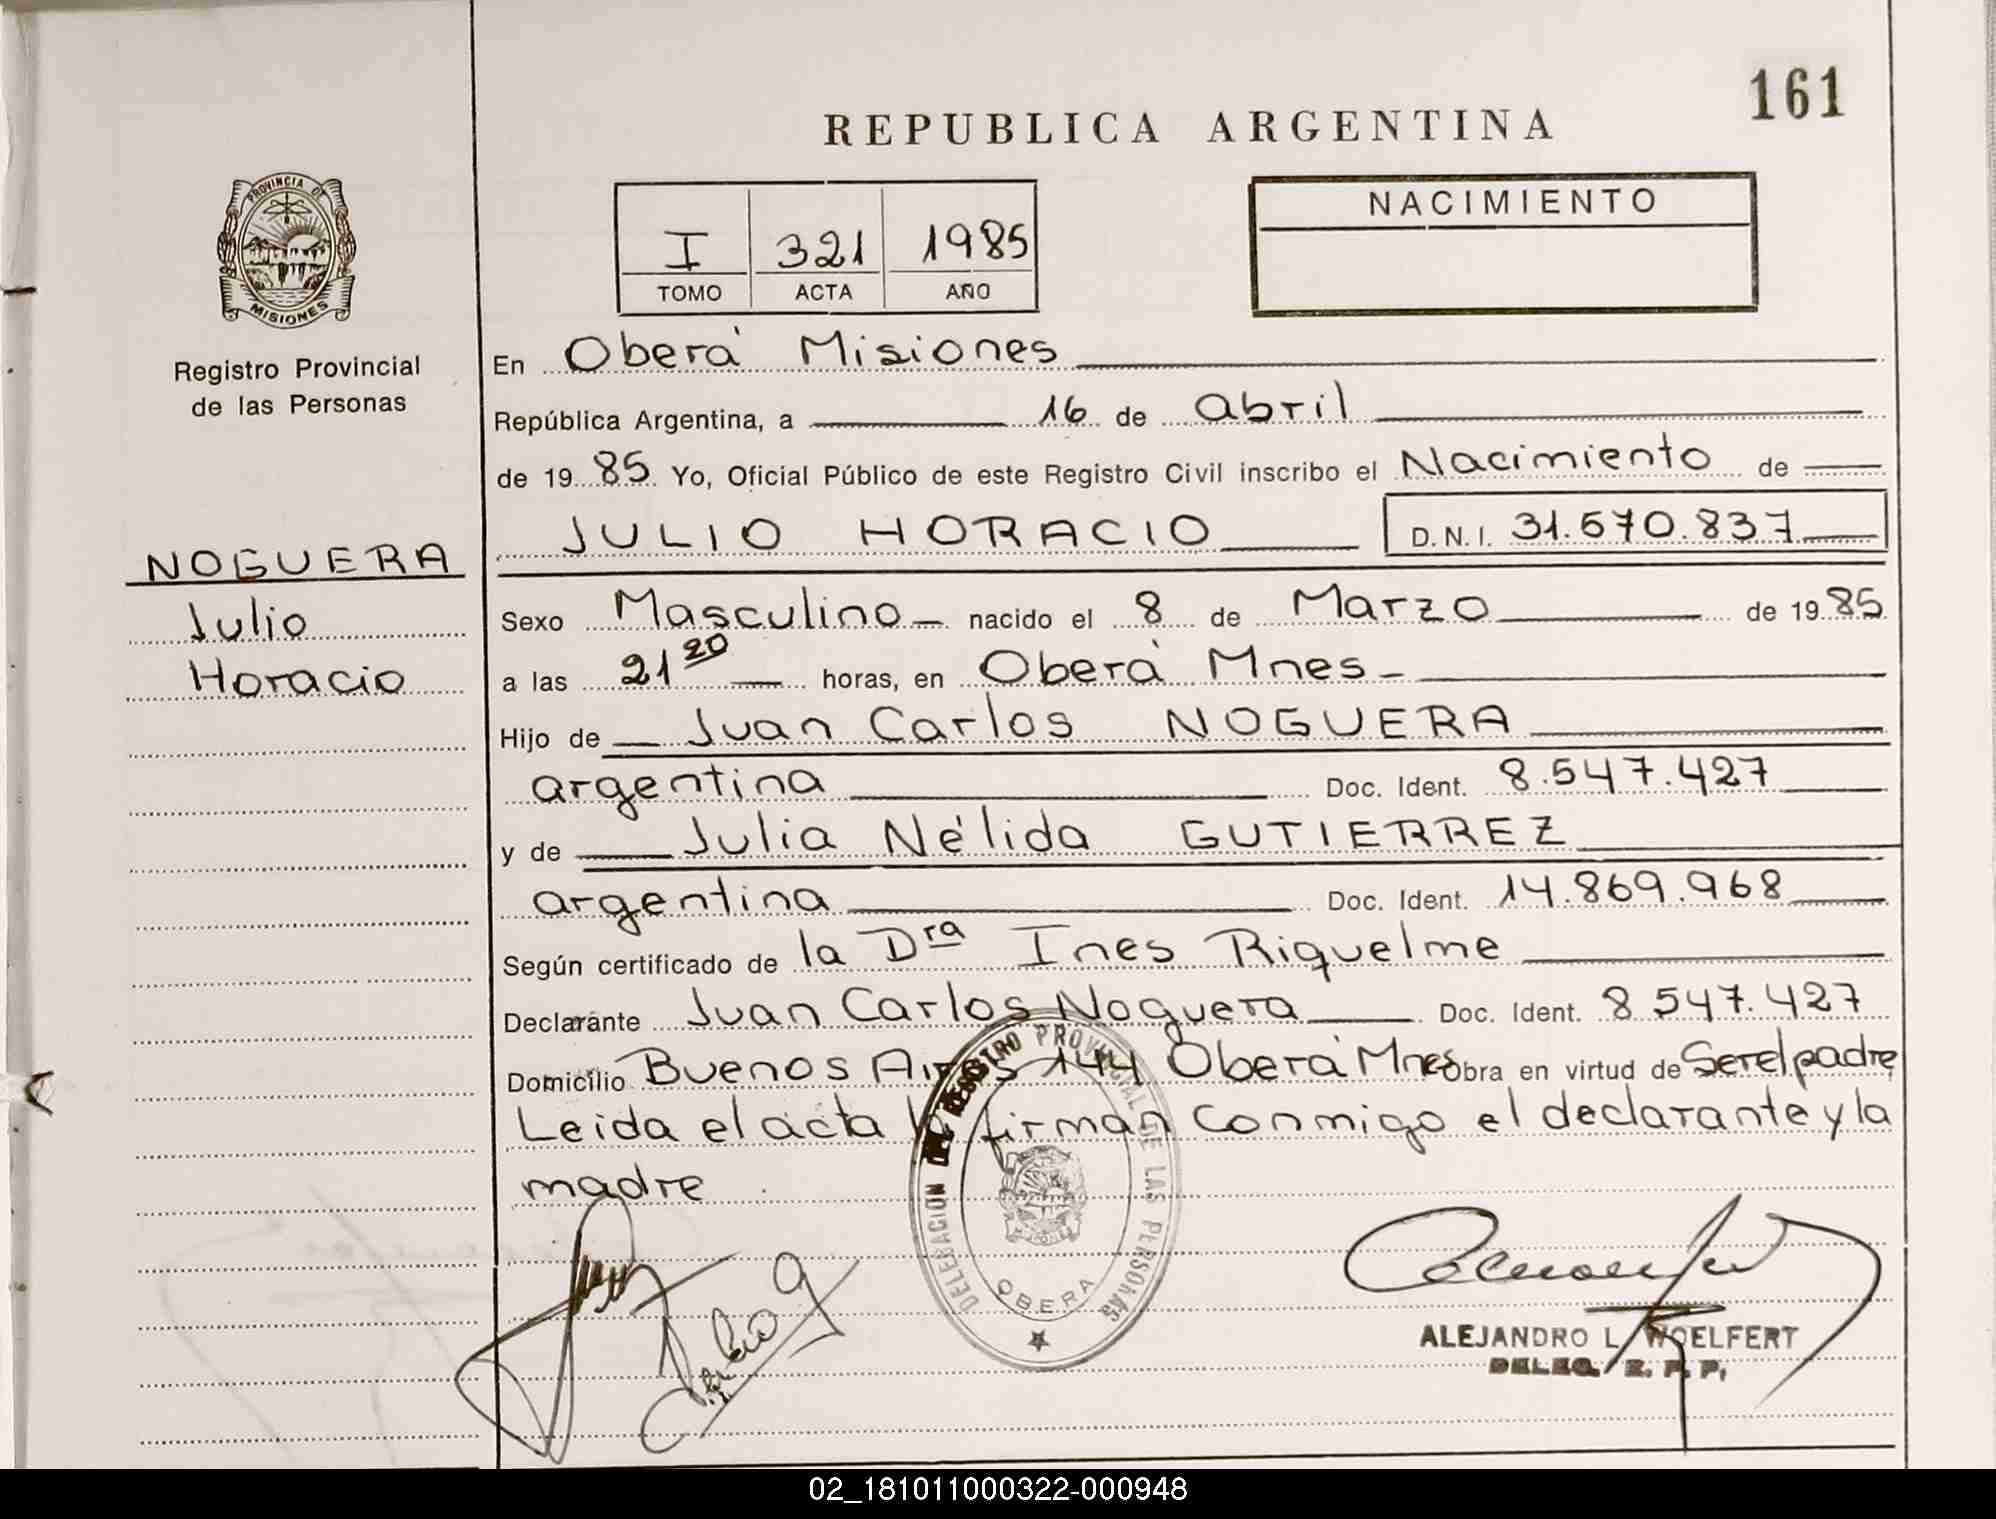 161
REPUBLICA ARGENTINA
PROVINCIA DE
MISIONES
Registro Provincial
de las Personas
I 321 1985
TOMO ACTA AÑO
NACIMIENTO
En Oberá Misiones
República Argentina, a 16 de abril
de 1985 Yo, Oficial Público de este Registro Civil inscribo el Nacimiento de
JULIO HORACIO D.N.I. 31.570.837
NOGUERA
Julio
Horacio
Sexo Masculino nacido el 8 de Marzo de 1985
a las 21 20 horas, en Oberá Mnes
Hijo de Juan Carlos NOGUERA
argentina Doc. Ident. 8.547.427
y de Julia Nélida GUTIERREZ
argentina Doc. Ident. 14.869.968
Según certificado de la Dra Ines Riquelme
Declarante Juan Carlos Noguera Doc. Ident. 8 547.427
Domicilio Buenos Aires 144 Oberá Mnes obra en virtud de Ser el padre
Leida el acta la firman conmigo el declarante y la
madre
DELEGACION DEL REGISTRO PROVINCIAL DE LAS PERSONAS
OBERA
ALEJANDRO L. WOELFERT
DELEG. R. P. P.
02_181011000322-000948